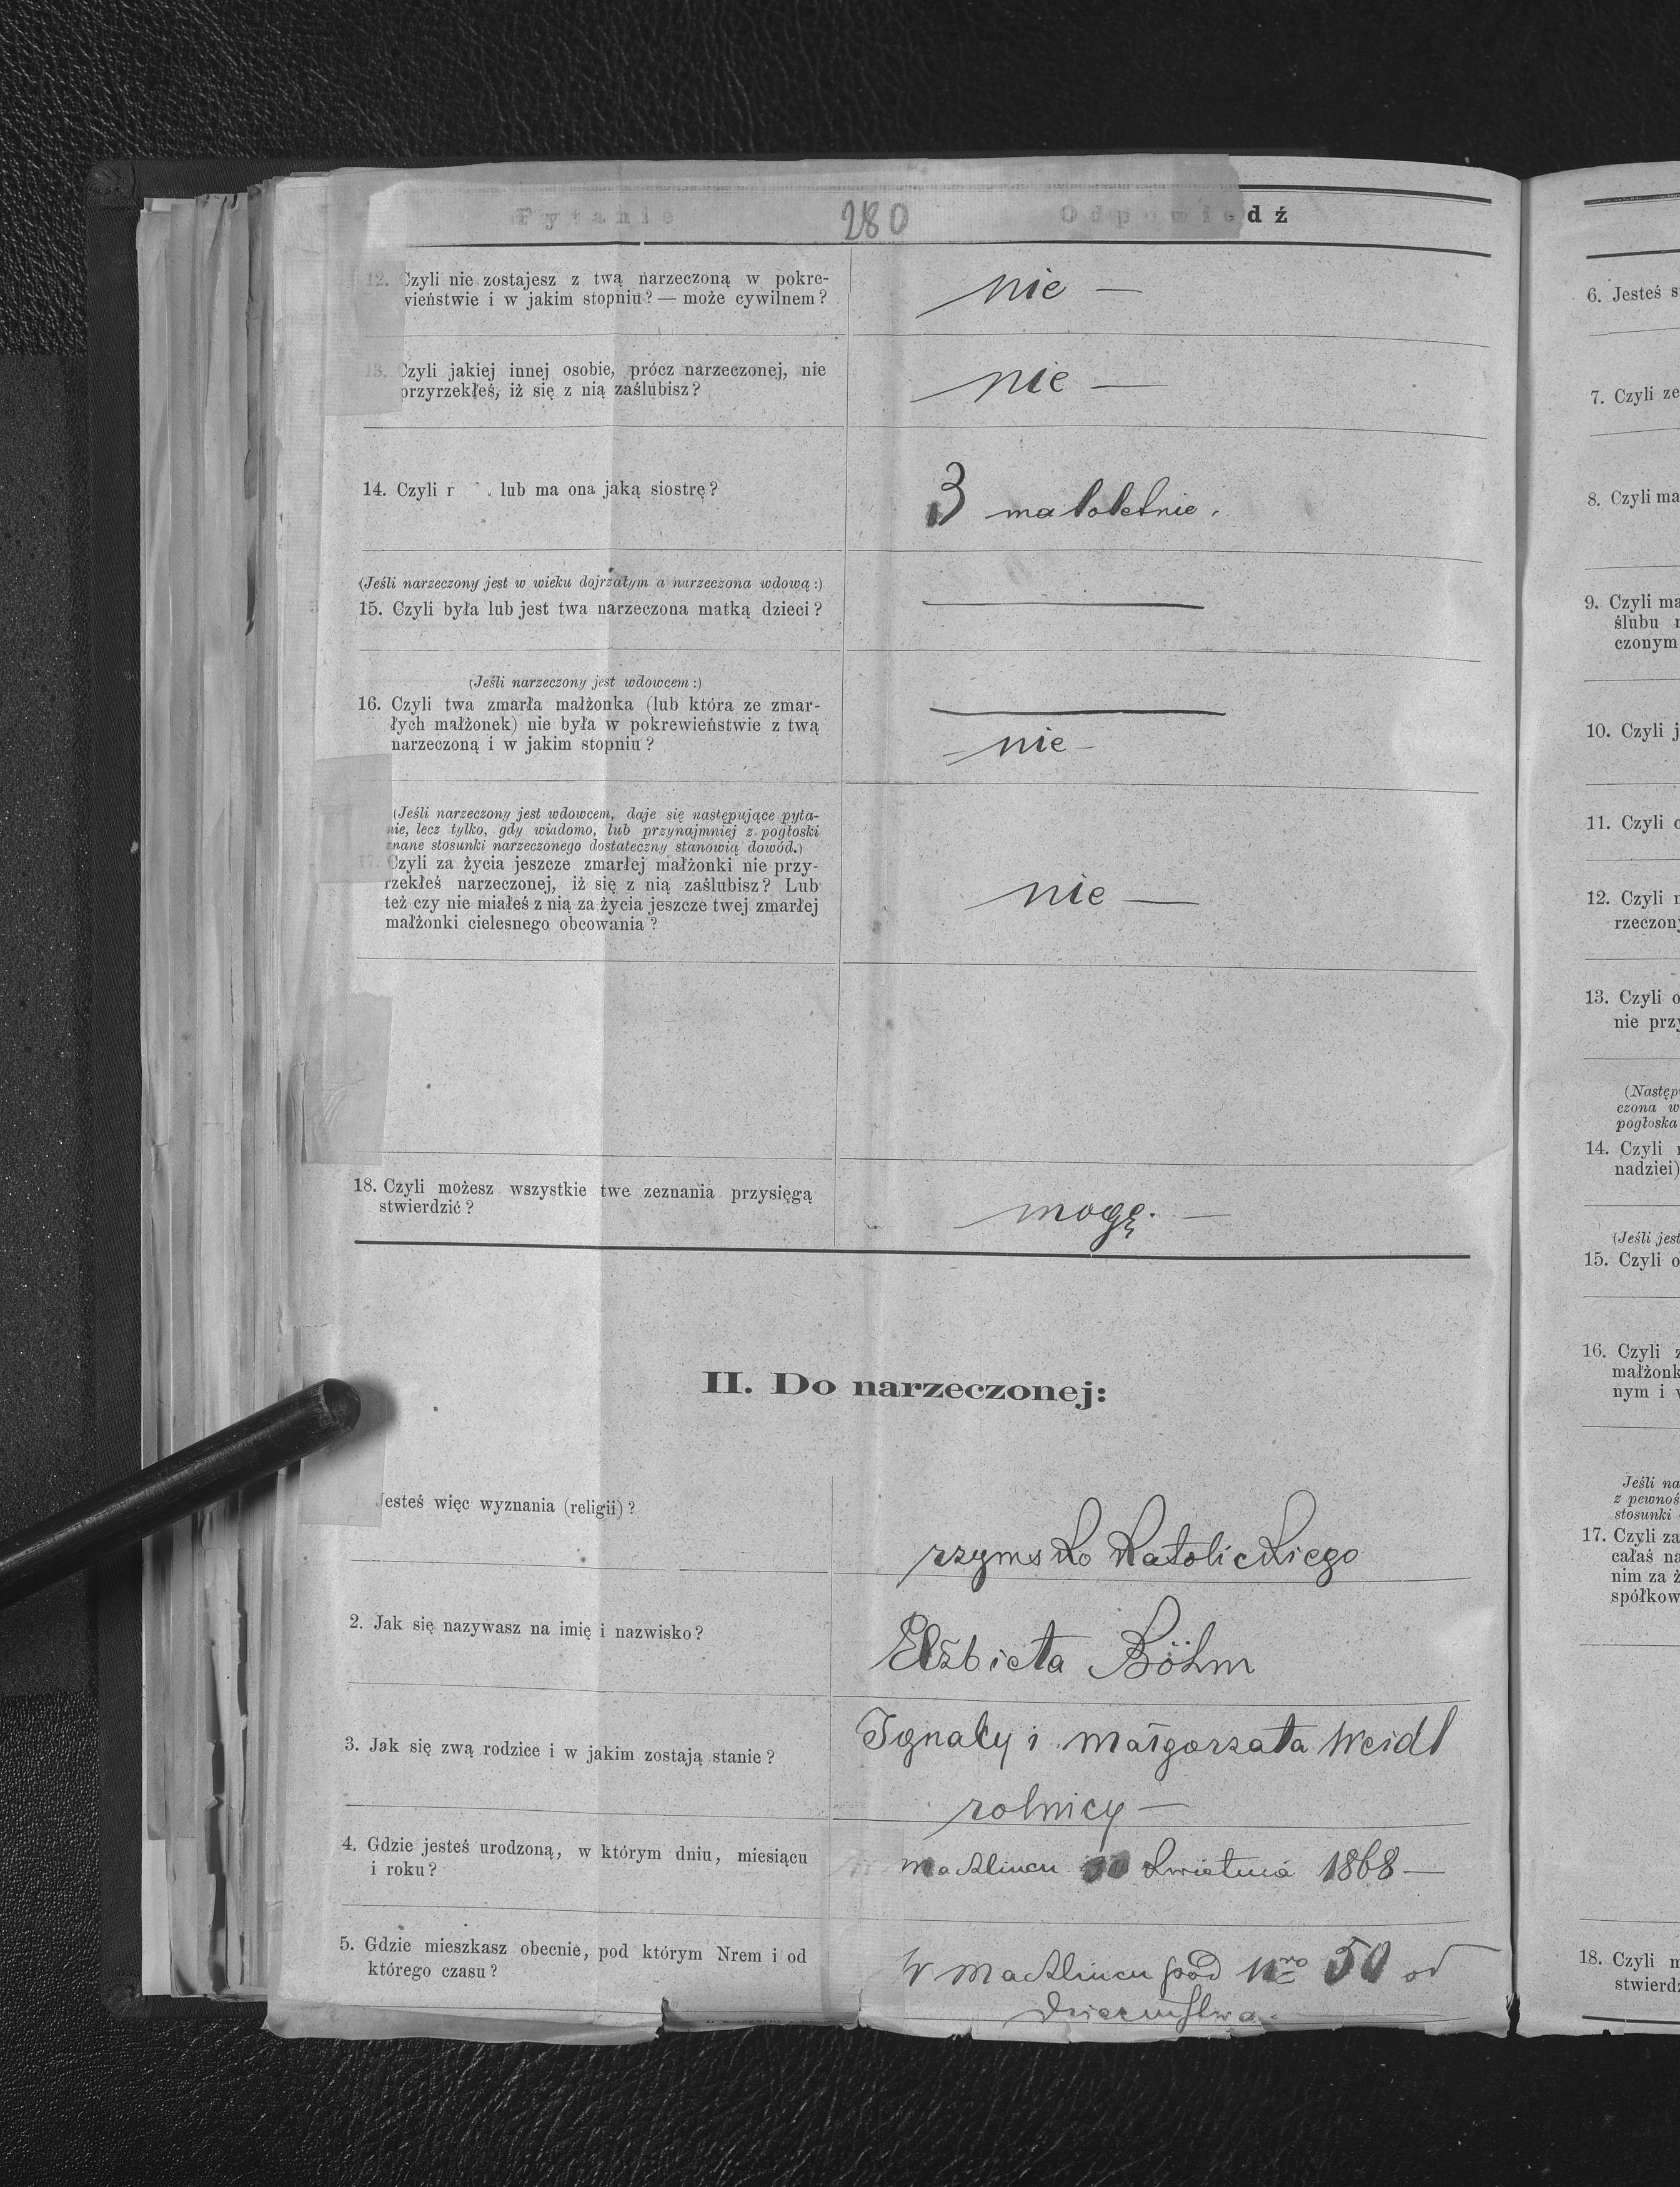 Pytanie
280
Odpowiedź
12. Czyli nie zostajesz z twą narzeczoną w pokre-
wieństwie i w jakim stopniu? — może cywilnem?
nie —
13. Czyli jakiej innej osobie, prócz narzeczonej, nie
przyrzekłeś, iż się z nią zaślubisz?
nie —
14. Czyli lub ma ona jaką siostrę?
3 małoletnie.
(Jeśli narzeczony jest w wieku dojrzałym a narzeczona wdową:)
15. Czyli była lub jest twa narzeczona matką dzieci?
(Jeśli narzeczony jest wdowcem:)
16. Czyli twa zmarła małżonka (lub która ze zmar-
łych małżonek) nie była w pokrewieństwie z twą
narzeczoną i w jakim stopniu?
— nie —
(Jeśli narzeczony jest wdowcem, daje się następujące pyta-
nie, lecz tylko, gdy wiadomo, lub przynajmniej z pogłoski
znane stosunki narzeczonego dostateczny stanowią dowód.)
17. Czyli za życia jeszcze zmarłej małżonki nie przy-
rzekłeś narzeczonej, iż się z nią zaślubisz? Lub
też czy nie miałeś z nią za życia jeszcze twej zmarłej
małżonki cielesnego obcowania?
nie —
18. Czyli możesz wszystkie twe zeznania przysięgą
stwierdzić?
mogę. —
II. Do narzeczonej:
Jesteś więc wyznania (religii)?
rzymsko katolickiego
2. Jak się nazywasz na imię i nazwisko?
Elżbieta Böhm
3. Jak się zwą rodzice i w jakim zostają stanie?
Ignacy i małgorzata Weidl
rolnicy —
4. Gdzie jesteś urodzoną, w którym dniu, miesiącu
i roku?
Machlincu 30 kwietnia 1868 —
5. Gdzie mieszkasz obecnie, pod którym Nrem i od
którego czasu?
W Machlincu pod Nro 50 od
dzieciństwa.
6. Jesteś s
7. Czyli ze
8. Czyli ma
9. Czyli ma
ślubu
czonym
10. Czyli j
11. Czyli
12. Czyli
rzeczon
13. Czyli o
nie przy
(Następ
czona w
pogłoska
14. Czyli
nadziei)
(Jeśli jest
15. Czyli o
16. Czyli z
małżonk
nym i
Jeśli na
z pewnoś
stosunki
17. Czyli za
całaś na
nim za ż
spółkow
18. Czyli m
stwierdz